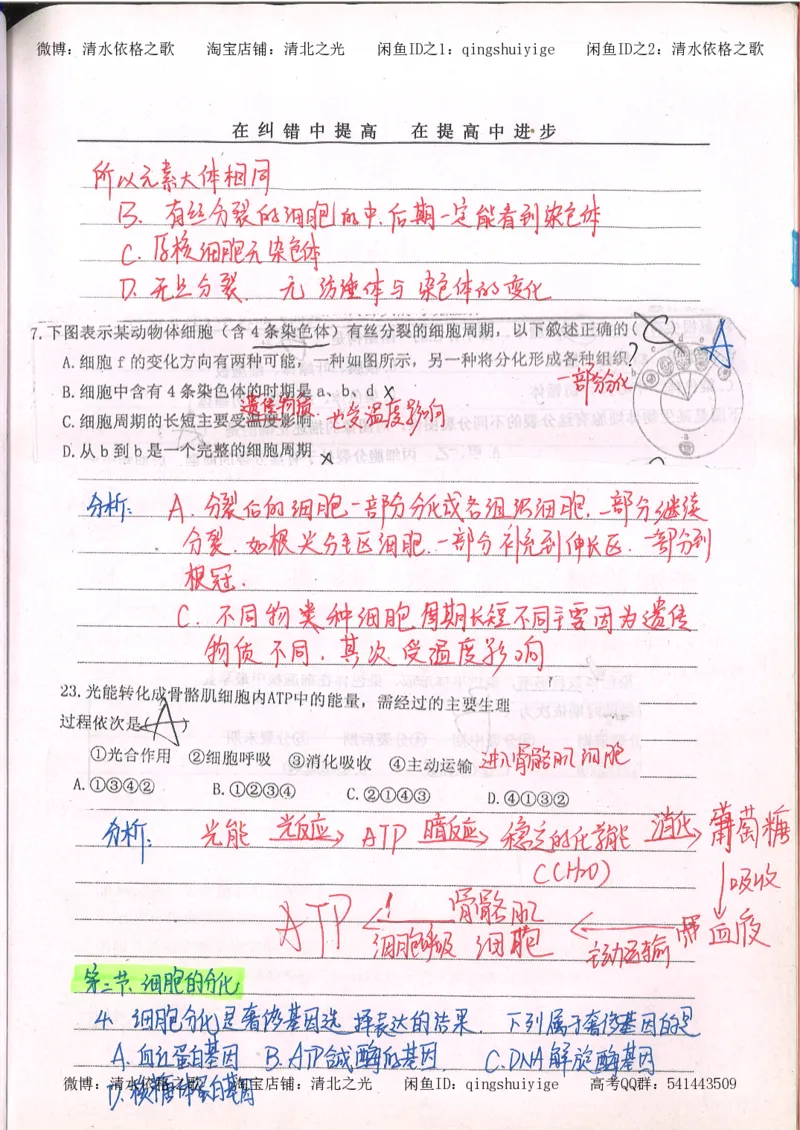 微博：清水依格之歌 淘宝店铺：清北之光 闲鱼ID之1：qingshuiyige 闲鱼ID之2：清水依格之歌
在纠错中提高 在提高中进步
所以元素大体相同
B. 有丝分裂的细胞的中.后期一定能看到染色体
C. 原核细胞无染色体
D. 无丝分裂 无纺锤体与染色体的变化
7.下图表示某动物体细胞（含4条染色体）有丝分裂的细胞周期，以下叙述正确的( C ) A
A.细胞f的变化方向有两种可能，一种如图所示，另一种将分化形成各种组织?
一部分分化
B.细胞中含有4条染色体的时期是a、b、d ×
遗传物质.
C.细胞周期的长短主要受温度影响 也受温度影响
D.从b到b是一个完整的细胞周期 ×
分析: A. 分裂后的细胞一部分分化成各组织细胞.一部分继续
分裂.如根尖分生区细胞.一部分补充到伸长区.一部分到
根冠.
C. 不同物类种细胞周期长短不同主要因为遗传
物质不同.其次受温度影响
23.光能转化成骨骼肌细胞内ATP中的能量，需经过的主要生理
过程依次是( A )
①光合作用 ②细胞呼吸 ③消化吸收 ④主动运输 进入骨骼肌细胞
A.①③④② B.①②③④ C.②①④③ D.④①③②
分析: 光能 光反应→ ATP 暗反应→ 稳定的化学能 消化→ 葡萄糖
C(H2O)
↓吸收
ATP ← 细胞呼吸 骨骼肌细胞 ← 主动运输 血液
第二节 细胞的分化
4. 细胞分化是奢侈基因选择表达的结果. 下列属于奢侈基因的是
A. 血红蛋白基因 B. ATP合成酶的基因 C. DNA解旋酶基因
D. 核糖体蛋白基因
微博：清水依格之歌 淘宝店铺：清北之光 闲鱼ID：qingshuiyige 高考QQ群：541443509